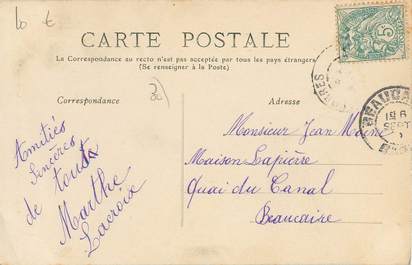 10 €
CARTE POSTALE
La Correspondance au recto n'est pas acceptée par tous les pays étrangers
(Se renseigner à la Poste)
Correspondance
Adresse
30
Amitiés
Sincères
de toute
Marthe
Lacroix
Monsieur Jean
Maison Lapierre
Quai du Canal
Beaucaire
5
BEAUCA
16
SEPT